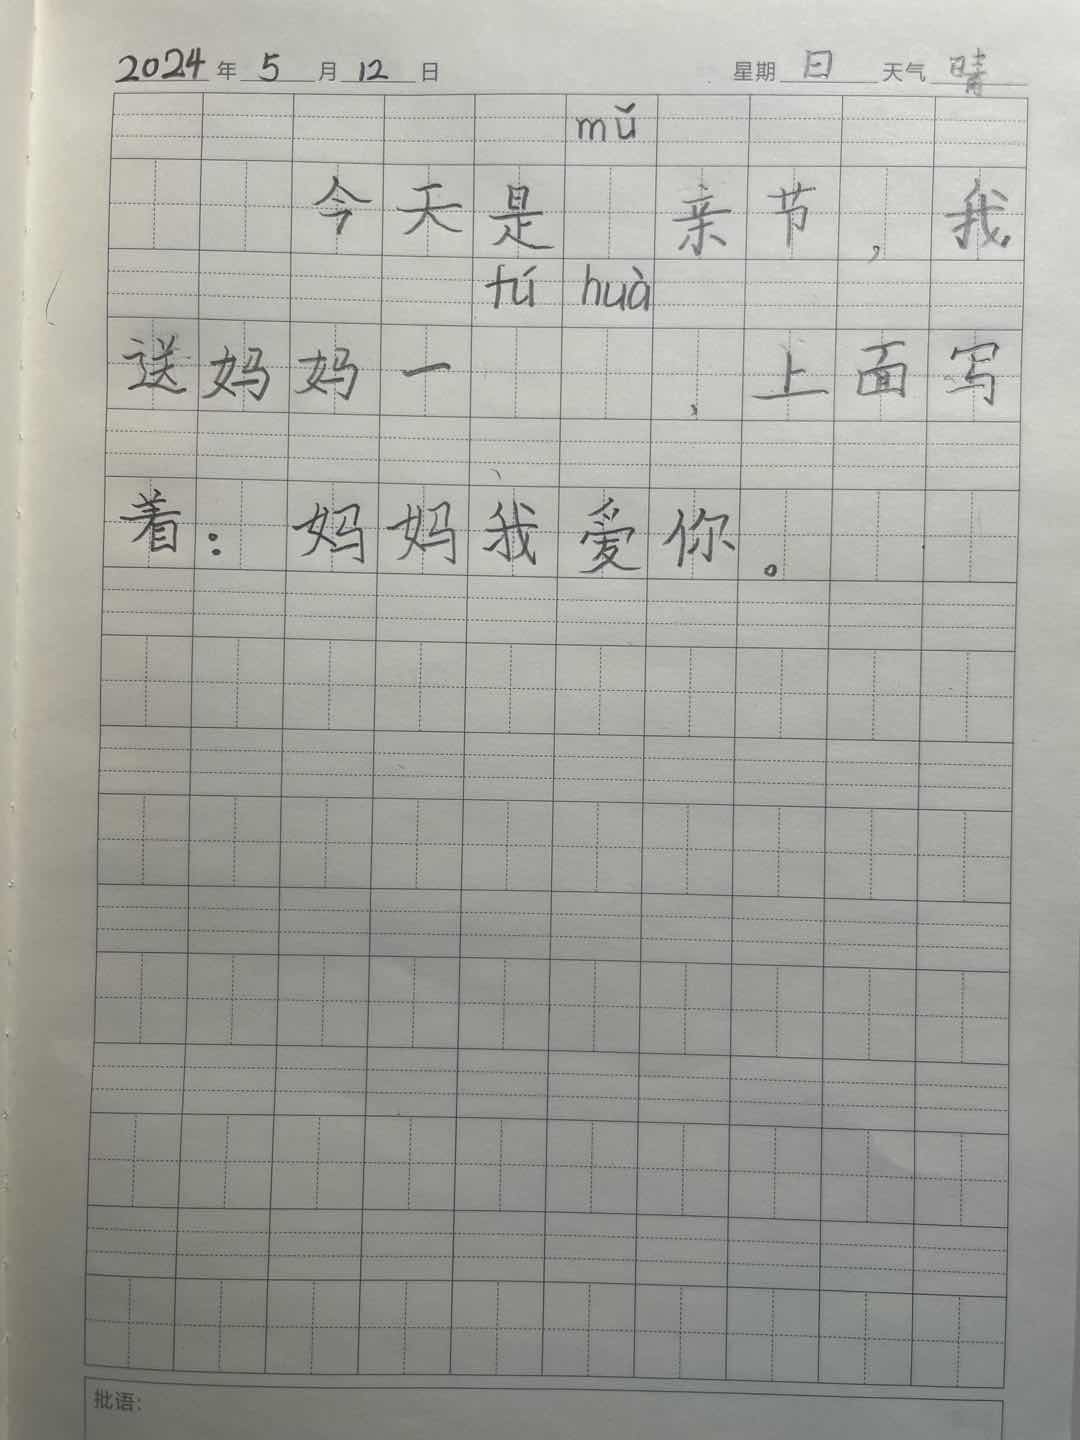 2024年5月12日 星期日 天气晴
mǔ
今天是 亲节，我
tú huà
送妈妈一 ，上面写
着：妈妈我爱你。
批语：